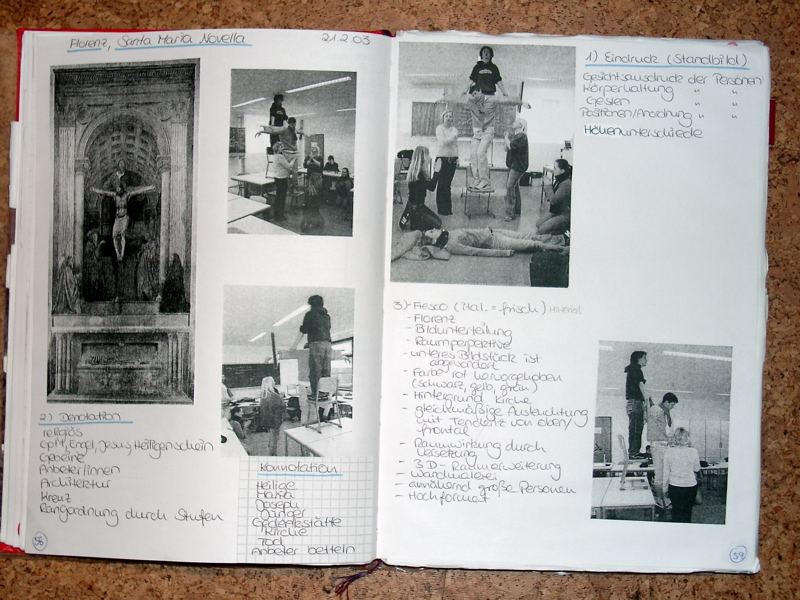 Florenz, Santa Maria Novella 21.2.03
2) Denotation
religiös
Opfer, Engel, Jesus, Heiligenschein
Gebeine
Anbeter/innen
Architektur
Kreuz
Rangordnung durch Stufen
Konnotation
Heilige
Maria
Joseph
Jünger
Gedenkstätte
Kirche
Tod
Anbeter betteln
56
1) Eindruck (Standbild)
Gesichtsausdruck der Personen
Körperhaltung " "
Gesten " "
Positionen/Anordnung " "
Höhenunterschiede
3)- Fresco (ital. = frisch) Material
- Florenz
- Bildunterteilung
- Raumperspektive
- unteres Bildstück ist
- Farbe rot hervorgehoben
(schwarz, gelb, grün)
- Hintergrund Kirche
- gleichmäßige Ausleuchtung
mit Tendenz von oben/
frontal
- Raumwirkung durch
Versetzung
- 3D-Raumerweiterung
- Wandmalerei
- annähernd große Personen
- Hochformat